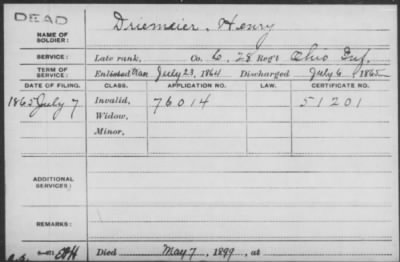 DEAD
NAME OF SOLDIER: Driemeier, Henry
SERVICE: Late rank, Co. 6, 28 Reg't Ohio Inf.
TERM OF SERVICE: Enlisted July 23, 1864 Discharged July 6 1865
DATE OF FILING. CLASS. APPLICATION NO. LAW. CERTIFICATE NO.
1865 July 7 Invalid, 76014 51201
Widow,
Minor,
ADDITIONAL SERVICES:
REMARKS:
Died May 7, 1899, at